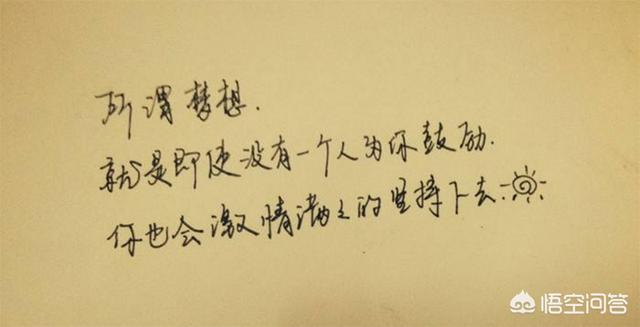 所谓梦想.
就是即使没有一个人为你鼓励.
你也会激情满之的坚持下去
悟空问答